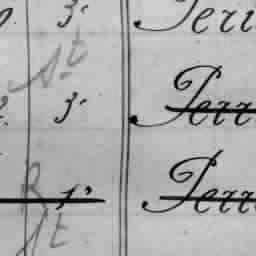 3. Perr
St
3. Perr
R 1. Perr
St